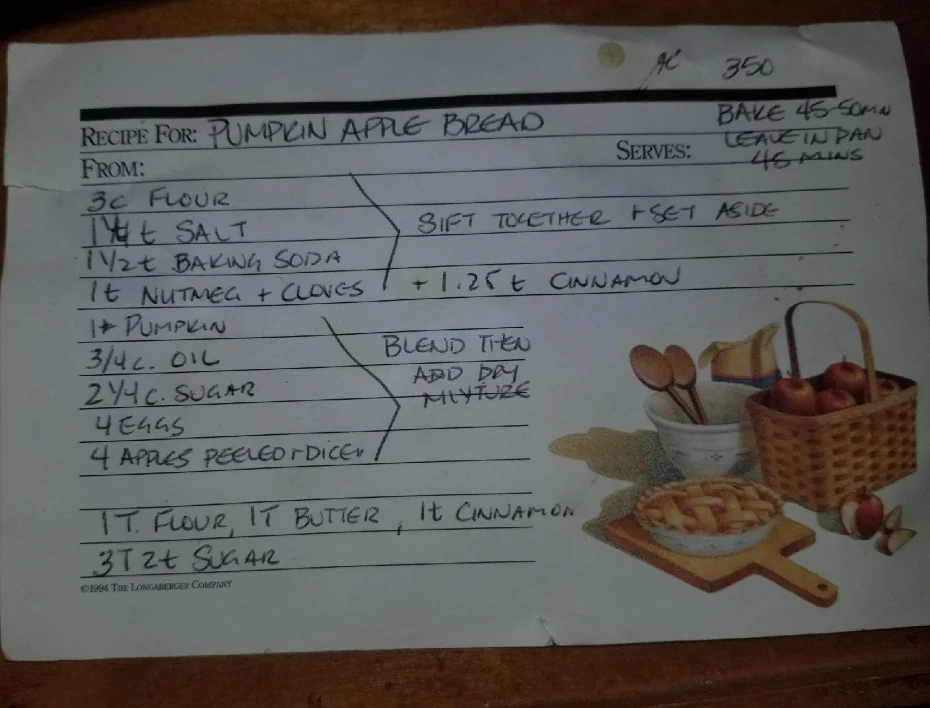 350
RECIPE FOR: PUMPKIN APPLE BREAD
BAKE 45-50MN
FROM:
SERVES:
LEAVE IN PAN
45 MINS
3C FLOUR
t SALT
SIFT TOGETHER + SET ASIDE
1 1/2 t BAKING SODA
1t NUTMEG + CLOVES
+ 1.25 t CINNAMON
PUMPKIN
3/4 C. OIL
BLEND THEN
ADD DRY
MIXTURE
2 1/4 C. SUGAR
4 EGGS
4 APPLES PEELED + DICED
1T. FLOUR, 1T BUTTER, 1t CINNAMON
3T 2t SUGAR
©1994 THE LONGABERGER COMPANY